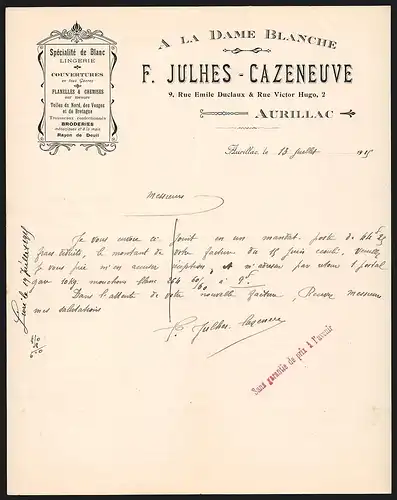 Spécialité de Blanc
LINGERIE
COUVERTURES
en tous Genres
FLANELLES & CHEMISES
sur mesure
Toiles du Nord, des Vosges
et de Bretagne
Trousseaux confectionnés
BRODERIES
mécaniques et à la main
Rayon de Deuil
A LA DAME BLANCHE
F. JULHES - CAZENEUVE
9, Rue Emile Duclaux & Rue Victor Hugo, 2
AURILLAC
Aurillac, le 13 Juillet 1915
Messieurs
Je vous envoie ci joint en un mandat poste de
frass le montant de votre facture du 15 juin
Je vous prie m'en accuser réception, et m'adresser par retour 1 postal
gare 10 Kg. mouchoirs blanc 264 60/60 à 9f.
Dans l'attente de votre nouvelle facture, Recevez messieurs
mes salutations
F. Julhes Cazeneuve
Livré le 19 juillet 1915
Sans garantie de prix à l'avenir